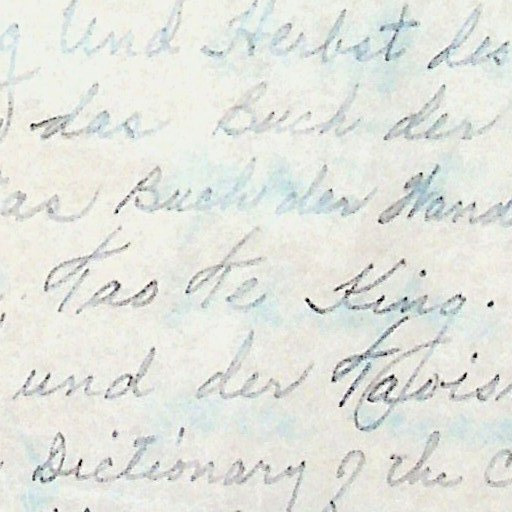 und Herbst des
das Buch der
Buch der Wand
Tao Te King.
und der Taois
Dictionary of the C